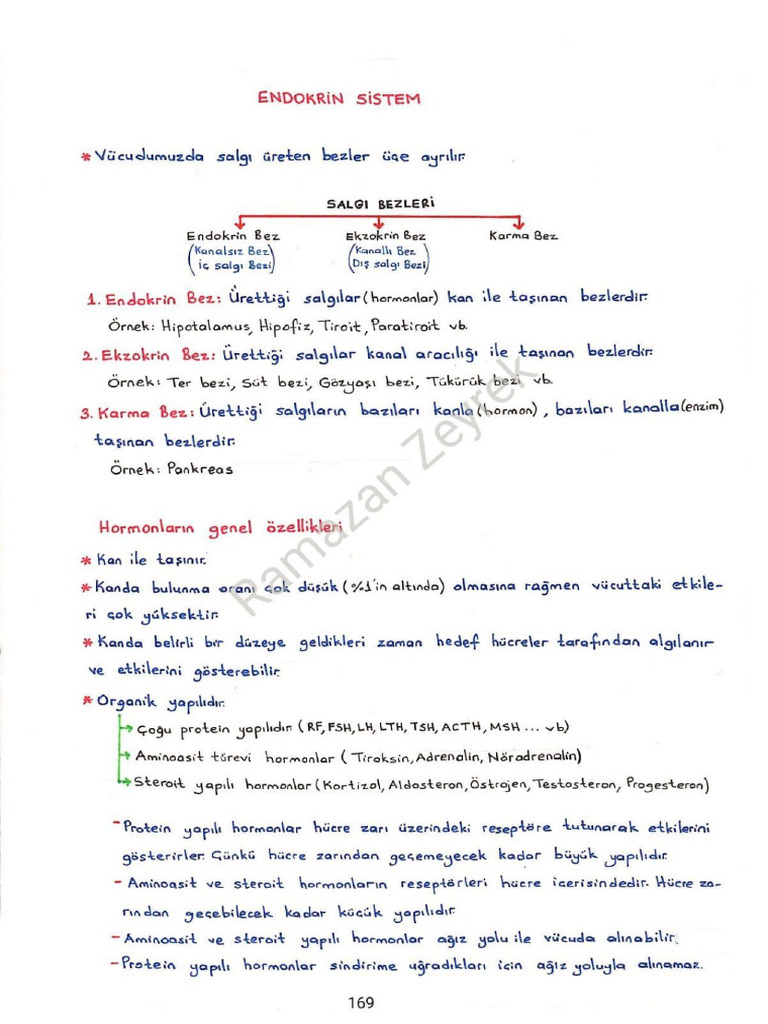 ENDOKRİN SİSTEM
* Vücudumuzda salgı üreten bezler üçe ayrılır.
SALGI BEZLERİ
Endokrin Bez Ekzokrin Bez Karma Bez
(Kanalsız Bez) (Kanallı Bez
iç salgı Bezi) Dış salgı Bezi)
1. Endokrin Bez: Ürettiği salgılar (hormonlar) kan ile taşınan bezlerdir.
Örnek: Hipotalamus, Hipofiz, Tiroit, Paratiroit vb.
2. Ekzokrin Bez: Ürettiği salgılar kanal aracılığı ile taşınan bezlerdir.
Örnek: Ter bezi, Süt bezi, Gözyaşı bezi, Tükürük bezi vb.
3. Karma Bez: Ürettiği salgıların bazıları kanla (hormon), bazıları kanalla (enzim)
taşınan bezlerdir.
Örnek: Pankreas
Ramazan Zeyrek
Hormonların genel özellikleri
* Kan ile taşınır.
* Kanda bulunma oranı çok düşük (%1'in altında) olmasına rağmen vücuttaki etkile-
ri çok yüksektir.
* Kanda belirli bir düzeye geldikleri zaman hedef hücreler tarafından algılanır
ve etkilerini gösterebilir.
* Organik yapılıdır.
Çoğu protein yapılıdır. (RF, FSH, LH, LTH, TSH, ACTH, MSH ... vb)
Aminoasit türevi hormonlar (Tiroksin, Adrenalin, Nöradrenalin)
Steroit yapılı hormonlar (Kortizol, Aldosteron, Östrojen, Testosteron, Progesteron)
- Protein yapılı hormonlar hücre zarı üzerindeki reseptöre tutunarak etkilerini
gösterirler. Çünkü hücre zarından geçemeyecek kadar büyük yapılıdır.
- Aminoasit ve steroit hormonların reseptörleri hücre içerisindedir. Hücre za-
rından geçebilecek kadar küçük yapılıdır.
- Aminoasit ve steroit yapılı hormonlar ağız yolu ile vücuda alınabilir.
- Protein yapılı hormonlar sindirime uğradıkları için ağız yoluyla alınamaz.
169